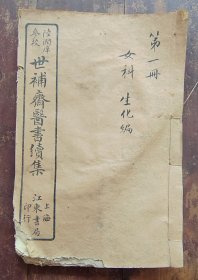 第一冊
女科 生化編
陸潤庠
參校
世補齋醫書續集
上海
江東書局
印行